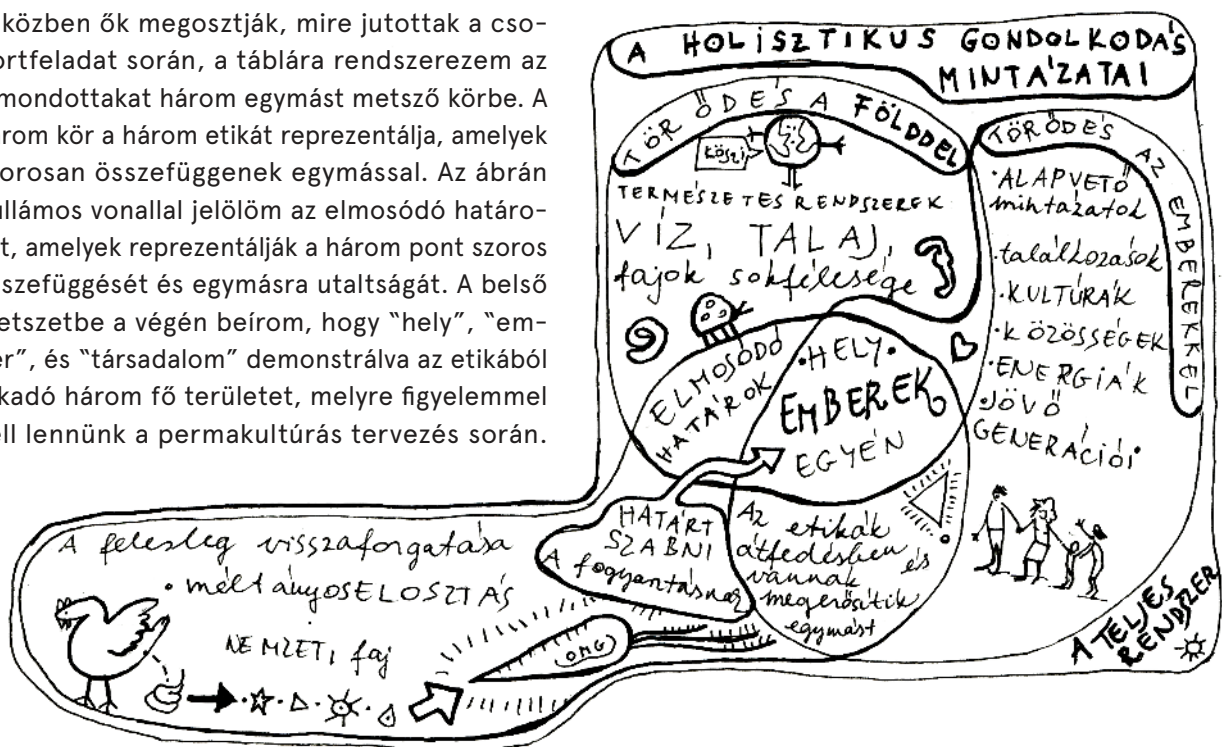 közben ők megosztják, mire jutottak a cso-
ortfeladat során, a táblára rendszerezem az
mondottakat három egymást metsző körbe. A
árom kör a három etikát reprezentálja, amelyek
orosan összefüggenek egymással. Az ábrán
ullámos vonallal jelölöm az elmosódó határo-
t, amelyek reprezentálják a három pont szoros
szefüggését és egymásra utaltságát. A belső
etszetbe a végén beírom, hogy "hely", "em-
er", és "társadalom" demonstrálva az etikából
kadó három fő területet, melyre figyelemmel
ell lennünk a permakultúrás tervezés során.
A HOLISZTIKUS GONDOLKODÁS
MINTÁZATAI
TÖRŐDÉS A FÖLDDEL
KÖSZI
TERMÉSZETES RENDSZEREK
VÍZ, TALAJ,
fajok sokfélesége
TÖRŐDÉS AZ EMBEREKKEL
•ALAPVETŐ
mintázatok
•találkozások
•KULTÚRÁK
•KÖZÖSSÉGEK
•ENERGIÁK
•JÖVŐ
GENERÁCIÓI•
ELMOSÓDÓ
HATÁROK
•HELY•
EMBEREK
EGYÉN
HATÁRT
SZABNI
A fogyasztásnak
Az etikák
átfedésben és
vannak
megerősítik
egymást
A felesleg visszaforgatása
• méltányos ELOSZTÁS
NEMZET, faj
(OMG)
A TELJES
RENDSZER